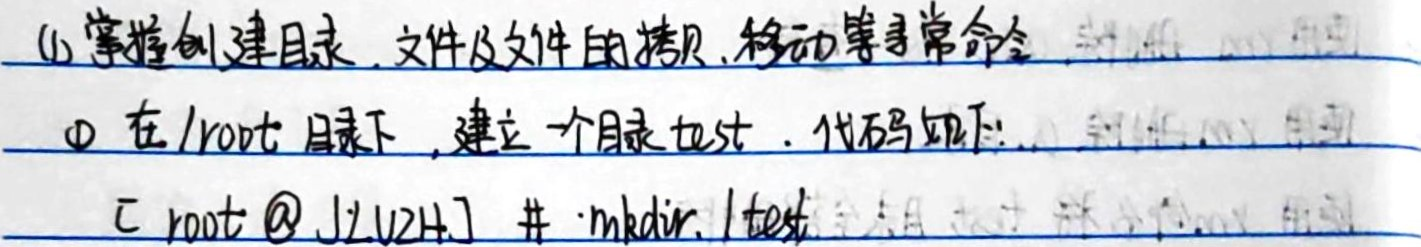 (1) 掌握创建目录、文件及文件的拷贝、移动等寻常命令
① 在/root 目录下,建立一个目录test.代码如下:
[root@JLUZH] # mkdir /test